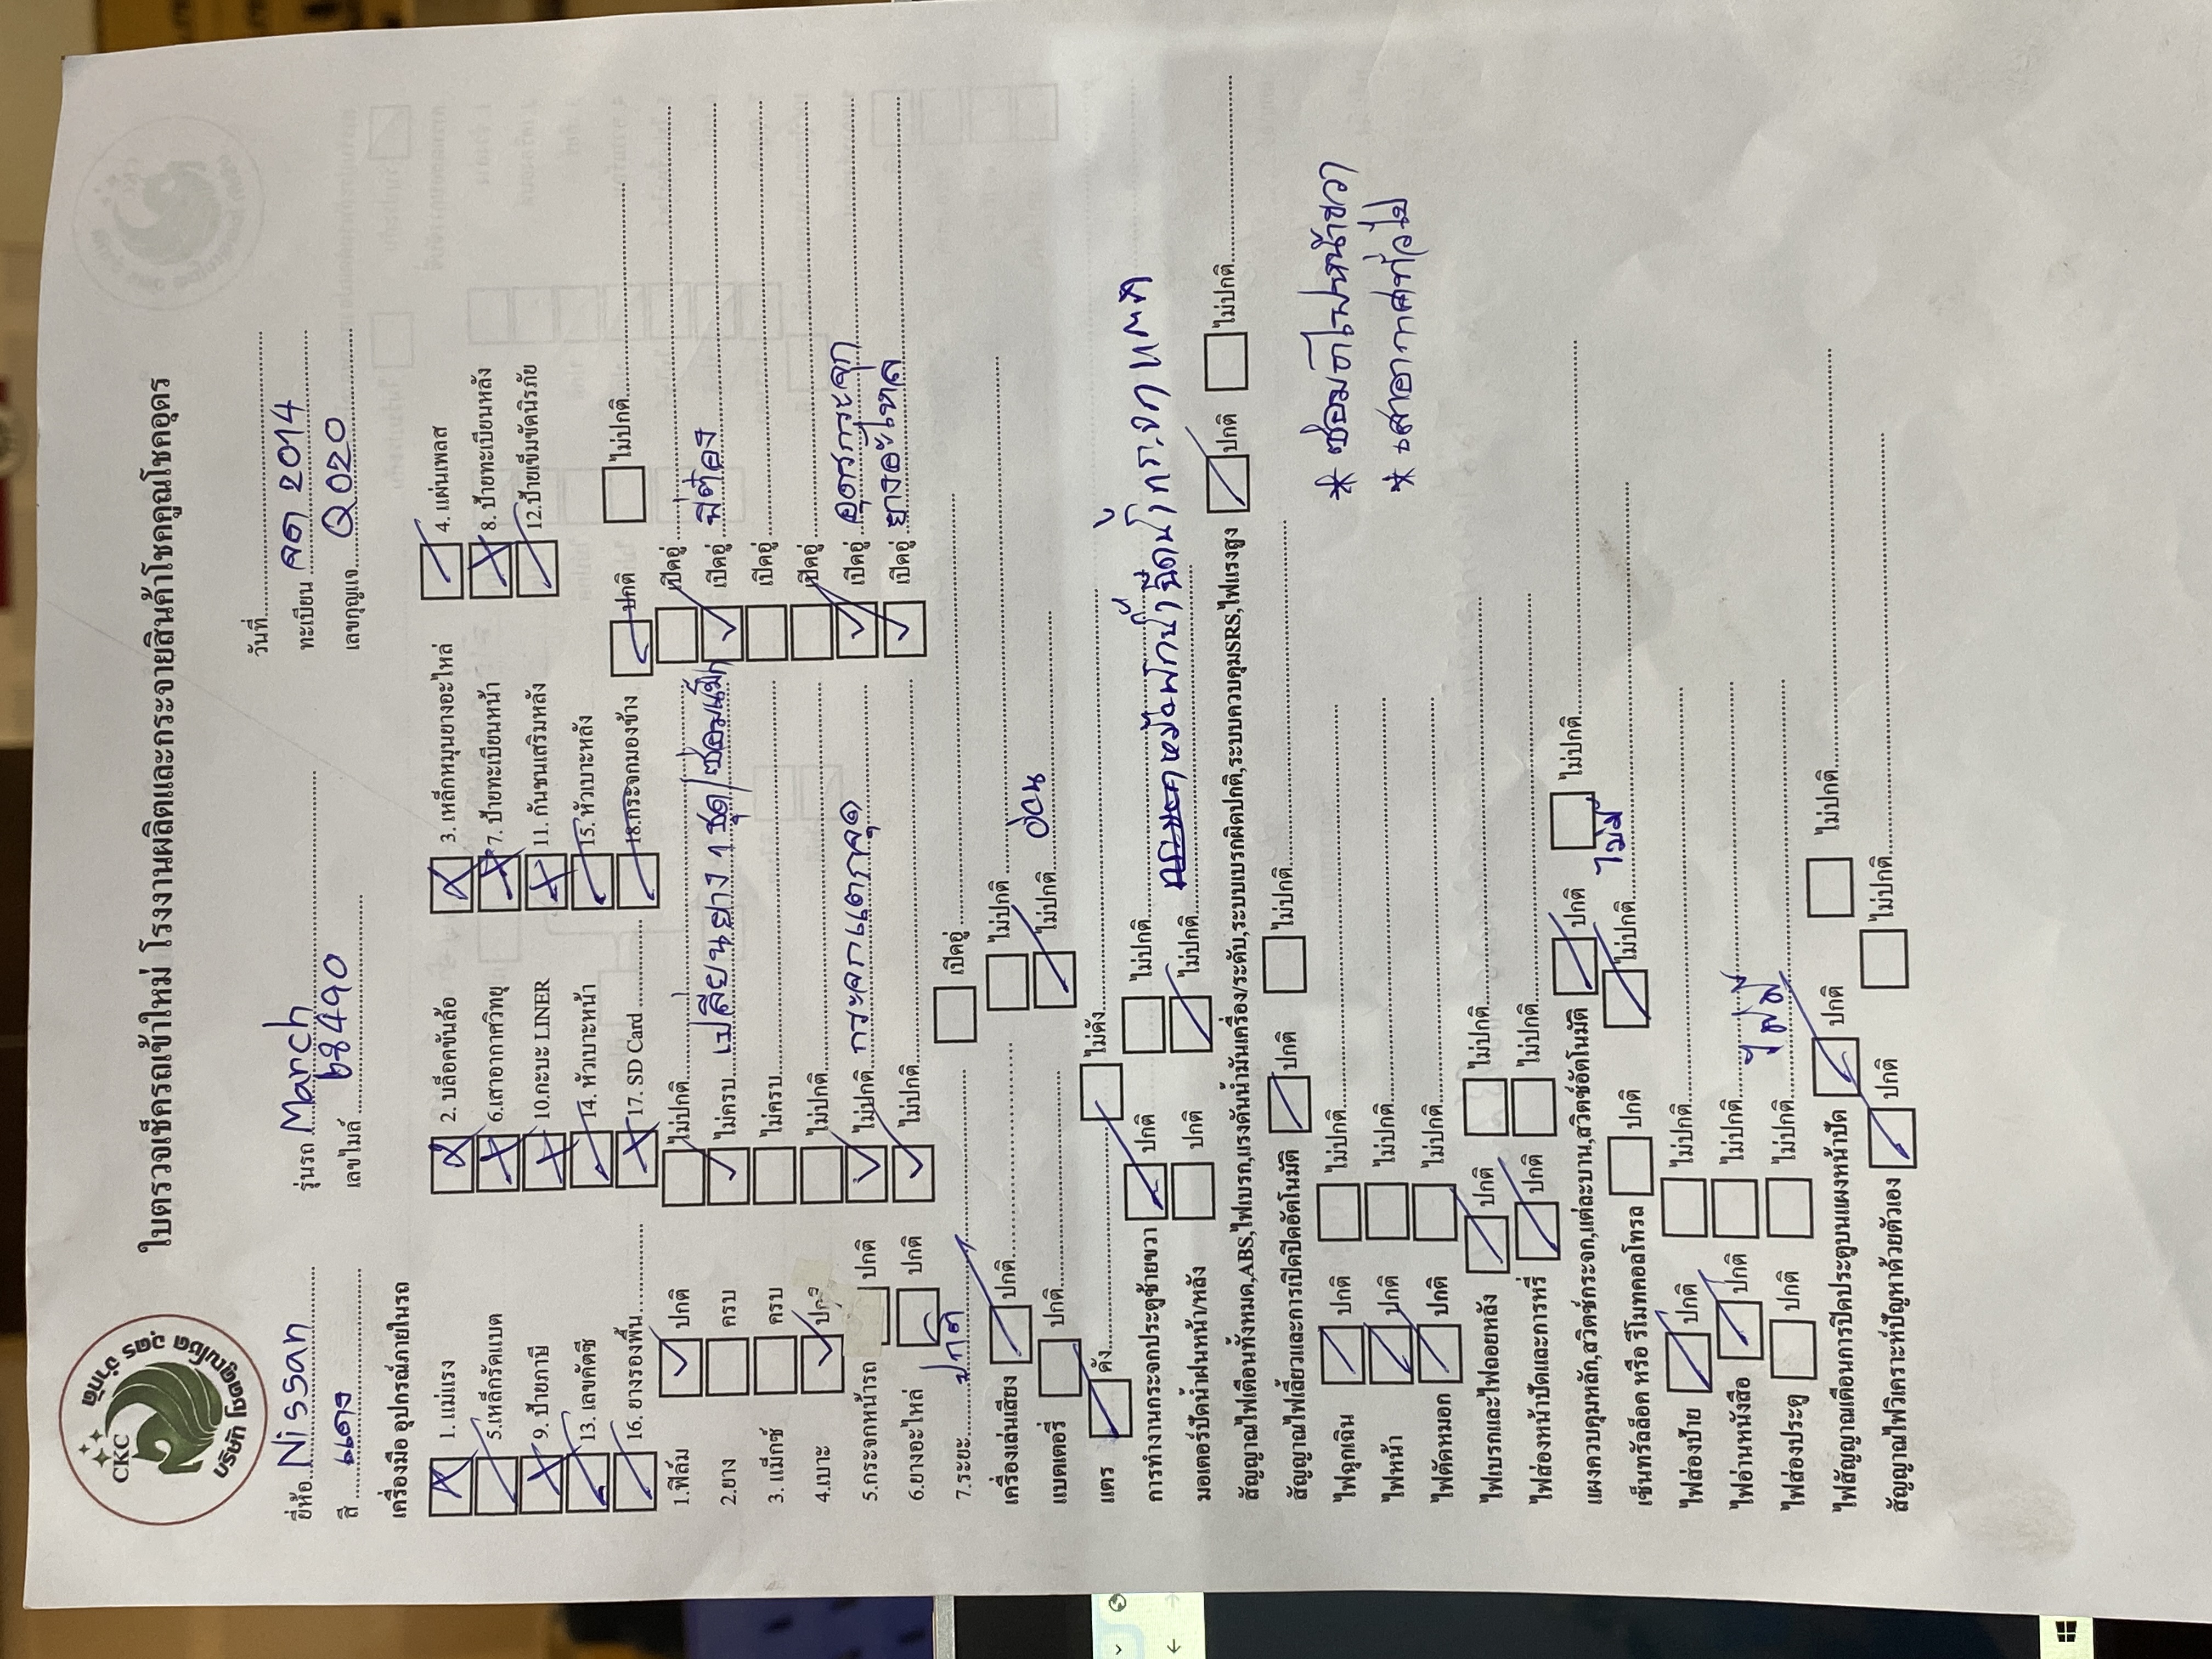 บริษัท โชคคูณโชค อุดร จำกัด
CKC
ใบตรวจเช็ครถเข้าใหม่ โรงงานผลิตและกระจายสินค้าโชคคูณโชคอุดร
วันที่
ยี่ห้อ Nissan รุ่นรถ March ทะเบียน 2014
สี แดง เลขไมล์ 68490 เลขกุญแจ Q020
เครื่องมือ อุปกรณ์ภายในรถ
1. แม่แรง 2. บล็อคขันล้อ 3. เหล็กหมุนยางอะไหล่ 4. แผ่นเพลส
5.เหล็กรัดแบต 6.เสาอากาศวิทยุ 7. ป้ายทะเบียนหน้า 8. ป้ายทะเบียนหลัง
9. ป้ายภาษี 10.กะบะ LINER 11. กันชนเสริมหลัง 12.ป้ายเข็มขัดนิรภัย
13. เลขคัตซี 14. หัวเบาะหน้า 15. หัวเบาะหลัง
16. ยางรองพื้น 17. SD Card 18.กระจกมองข้าง ปกติ ไม่ปกติ
1.ฟิล์ม ปกติ ไม่ปกติ เปิดอู่
2.ยาง ครบ ไม่ครบ เปลี่ยนยาง 1 ชุด/ซ่อมแม็ก เปิดอู่ พี่ต๋อง
3. แม็กซ์ ครบ ไม่ครบ เปิดอู่
4.เบาะ ปกติ ไม่ปกติ เปิดอู่
5.กระจกหน้ารถ ปกติ ไม่ปกติ กระจกแตกจุด เปิดอู่ อุดรกระจก
6.ยางอะไหล่ ปกติ ไม่ปกติ เปิดอู่ ยางอะไหล่
7.ระยะ ปกติ เปิดอู่
เครื่องเล่นเสียง ปกติ ไม่ปกติ
แบตเตอรี่ ปกติ ไม่ปกติ อ่อน
แตร ดัง ไม่ดัง
การทำงานกระจกประตูซ้ายขวา ปกติ ไม่ปกติ
มอเตอร์ปัดน้ำฝนหน้า/หลัง ปกติ ไม่ปกติ หม้อพักน้ำฉีดน้ำกระจกแตก
สัญญาณไฟเตือนทั้งหมด,ABS,ไฟเบรก,แรงดันน้ำมันเครื่อง/ระดับ,ระบบเบรกผิดปกติ,ระบบควบคุมSRS,ไฟแรงสูง ปกติ ไม่ปกติ
สัญญาณไฟเลี้ยวและการเปิดปิดอัตโนมัติ ปกติ ไม่ปกติ
ไฟฉุกเฉิน ปกติ ไม่ปกติ
* ซ่อมหน้าขวา
ไฟหน้า ปกติ ไม่ปกติ
* เสาอากาศทั่วไป
ไฟตัดหมอก ปกติ ไม่ปกติ
ไฟเบรกและไฟถอยหลัง ปกติ ไม่ปกติ
ไฟส่องหน้าปัดและการหรี่ ปกติ ไม่ปกติ
แผงควบคุมหลัก,สวิตช์กระจก,แต่ละบาน,สวิตซ์อัตโนมัติ ปกติ ไม่ปกติ
เซ็นทรัลล็อค หรือ รีโมทคอลโทรล ปกติ ไม่ปกติ ไม่มี
ไฟส่องป้าย ปกติ ไม่ปกติ
ไฟอ่านหนังสือ ปกติ ไม่ปกติ
ไฟส่องประตู ปกติ ไม่ปกติ
ไฟสัญญาณเตือนการปิดประตูบนแผงหน้าปัด ปกติ ไม่ปกติ
สัญญาณไฟวิเคราะห์ปัญหาด้วยตัวเอง ปกติ ไม่ปกติ